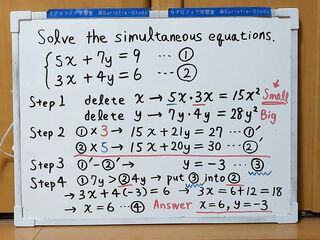 ソフィア学習室 @Suriofia-Study
Solve the simultaneous equations.
5x + 7y = 9 … ①
3x + 4y = 6 … ②
Step 1 delete x → 5x・3x = 15x² Small
delete y → 7y・4y = 28y² Big
Step 2 ①×3 → 15x+21y = 27 …①'
②×5 → 15x+20y = 30 …②'
Step 3 ①'-②' → y = -3 …③
Step 4 ①7y>②4y → put ③ into ②
→ 3x+4(-3)=6 → 3x=6+12=18
→ x=6 …④ Answer x=6, y=-3